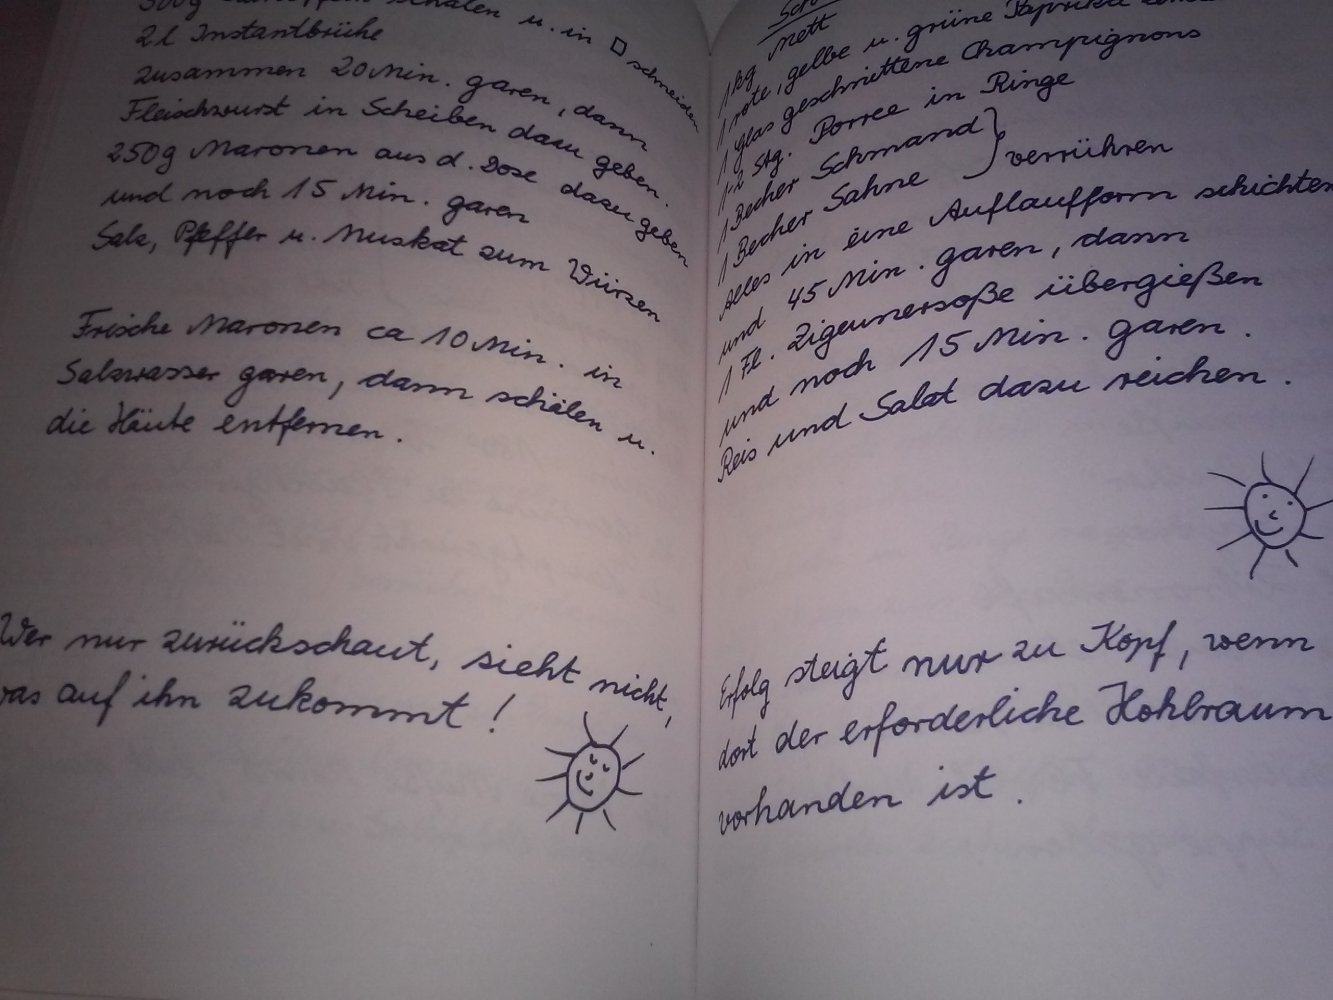 500g Kartoffeln schälen u. in □ schneiden
2 l Instantbrühe
zusammen 20 Min. garen, dann
Fleischwurst in Scheiben dazu geben.
250g Maronen aus d. Dose dazu geben
und noch 15 Min. garen
Salz, Pfeffer u. Muskat zum Würzen
Frische Maronen ca 10 Min. in
Salzwasser garen, dann schälen u.
die Häute entfernen.
Wer nur zurückschaut, sieht nicht,
was auf ihn zukommt!
1 kg Mett
1 rote, gelbe u. grüne Paprika
1 Glas geschnittene Champignons
1-2 Stg. Porree in Ringe
1 Becher Schmand
1 Becher Sahne } verrühren
Alles in eine Auflaufform schichten
und 45 Min. garen, dann
1 Fl. Zigeunersoße übergießen
und noch 15 Min. garen.
Reis und Salat dazu reichen.
Erfolg steigt nur zu Kopf, wenn
dort der erforderliche Hohlraum
vorhanden ist.